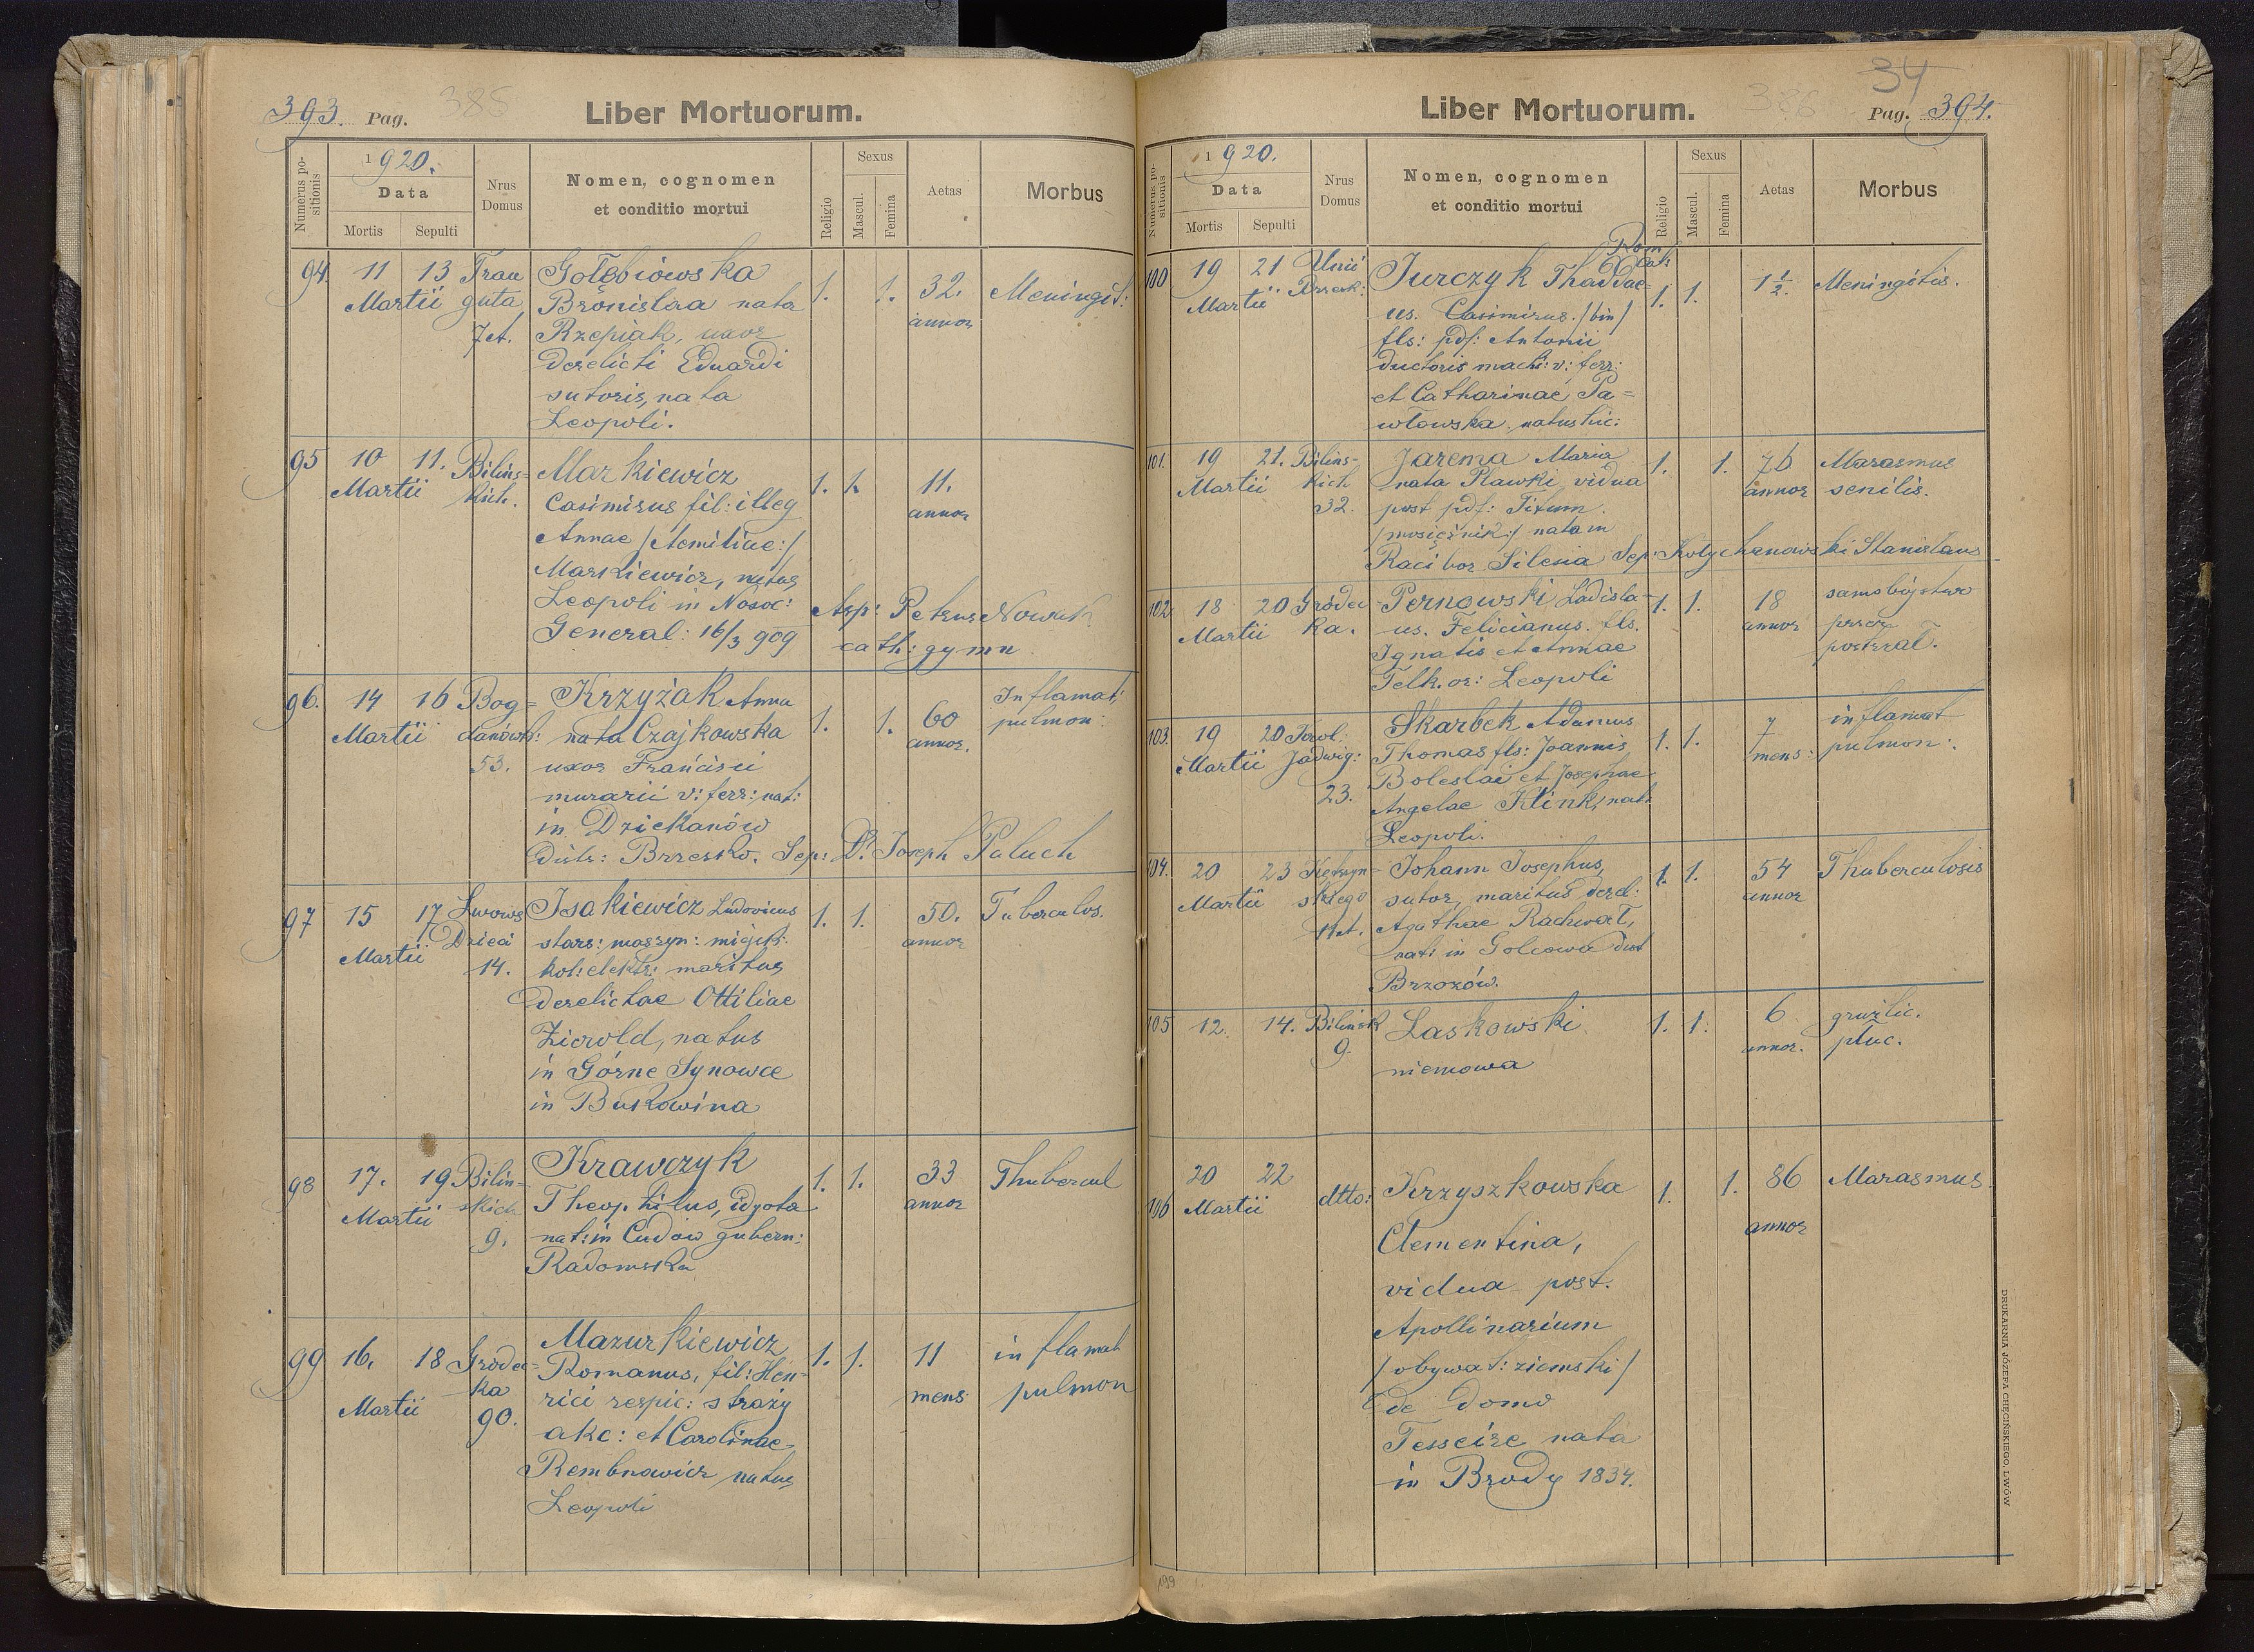 393. Pag. 385
Liber Mortuorum.
Numerus positionis
1920.
Data
Mortis Sepulti
Nrus Domus
Nomen, cognomen
et conditio mortui
Religio
Sexus
Mascul. Femina
Aetas
Morbus
94. 11 13 Martii
Trau
guta
7 A.
Gołębiowska
Bronislaa nata
Rzepiak, uxor
derelicti Eduardi
sutoris, nata
Leopoli.
1. 1. 32. annor
Meningit:
95 10 11. Martii
Bilińs-
kich.
Markiewicz
Casimirus fil: illeg
Annae /Aemiliae:/
Markiewicz, natus
Leopoli in Nosoc:
General: 16/3 909
1. 1. 11. annor
Asp: Petrus Nowak
cath: gymn
96. 14 16 Martii
Bog=
danówk:
53.
Krzyżak Anna
nata Czajkowska
uxor Francisci
murarii v: ferr: nat:
in Dziekanów
distr: Brzesko. Sep: Dr. Joseph Paluch
1. 1. 60 annor.
Inflamat:
pulmon:
97 15 17 Martii
Lwows
Dzieci
14.
Isakiewicz Ludovicus
stars: maszyn: miejsk:
kol: elektr: maritus
derelictae Ottiliae
Zierold, natus
in Górne Synowce
in Bukowina
1. 1. 50. annor
Tuberculos.
98 17. 19 Martii
Bilin-
skich
9.
Krawczyk
Theophilus, idyota
nat: in Cudów gubern:
Radomska
1. 1. 33 annor
Thubercul
99 16. 18 Martii
Gródec=
ka
90.
Mazurkiewicz
Romanus, fil: Hen-
rici respic: straży
akc: et Carolinae
Rembnowicz natus
Leopoli
1. 1. 11 mens
inflamat
pulmon
34
386 Pag. 394.
Liber Mortuorum.
Numerus positionis
1920.
Data
Mortis Sepulti
Nrus Domus
Nomen, cognomen
et conditio mortui
Religio
Sexus
Mascul. Femina
Aetas
Morbus
100 19 21 Martii
Unii
Brzesk:
Rom
Cat:
Jurczyk Thaddae=
us. Casimirus. /bin/
fls: pdf: Antonii
ductoris mach: v: ferr:
et Catharinae Pa=
włowska natus hic:
1. 1. 1 1/2.
Meningitis.
101. 19 21. Martii
Bilins-
kich
32.
Jarema Maria
nata Rawki vidua
post pdf: Titum.
/mosiężnik:/ nata in
Racibor Silesia Sep: Kolychanowski Stanislaus
1. 1. 76 annor
Marasmus
senilis.
102. 18 20 Martii
Gródec
ka.
Pernowski Ladisla-
us. Felicianus. fls.
Ignatis et Annae
Felk. or: Leopoli
1. 1. 18 annor
samobójstwo
przez
postrzał.
103. 19 20 Martii
Król·
Jadwig:
23.
Skarbek Adamus
Thomas fls: Joannis
Boleslai et Josephae
Angelae Klink, nat:
Leopoli.
1. 1. 7 mens:
inflamat
pulmon:.
104. 20 23 Martii
Kętrzyn=
skiego
11 A.
Johann Josephus,
sutor, maritus derel:
Agathae Rachwał,
nat: in Golcowa dist
Brzozów.
1. 1. 54 annor
Thuberculosis
105 12. 14.
Bilińsk
9.
Laskowski
niemowa
1. 1. 6 annor.
gruźlic.
płuc.
106 20 22 Martii
dtto:
Krzyszkowska
Clementina,
vidua post.
Apollinarium
/obywat: ziemski/
de domo
Tesseire nata
in Brody 1834.
1. 1. 86 annor
Marasmus.
199
DRUKARNIA JÓZEFA CHĘCIŃSKIEGO, LWÓW